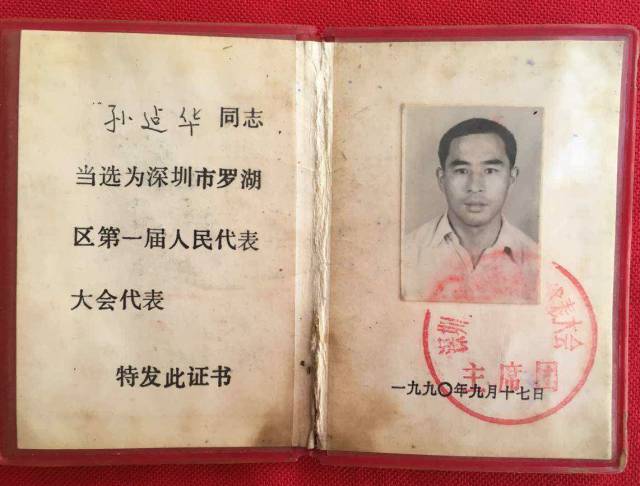 孙占华 同志
当选为深圳市罗湖
区第一届人民代表
大会代表
特发此证书
深圳
表大会
主席团
一九九〇年九月十七日